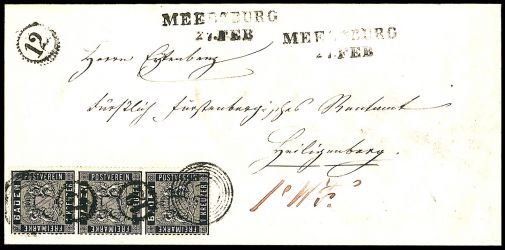 12
MEERSBURG
27.FEB
MEERSBURG
27.FEB
Herrn
Fürstlich Fürstenbergisches Rentamt
Heiligenberg.
BADEN POSTVEREIN FREIMARKE KREUZER
BADEN POSTVEREIN FREIMARKE KREUZER
BADEN POSTVEREIN FREIMARKE KREUZER